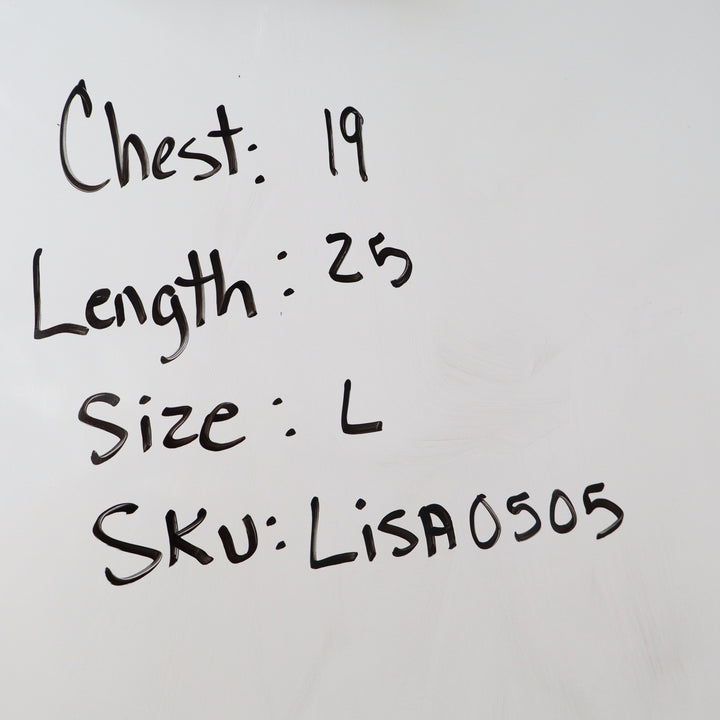 Chest: 19
Length: 25
Size: L
SKU: LiSA0505